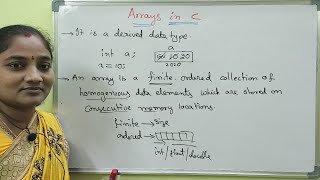 Arrays in C
- It is a derived data type
int a; a
a=10; 10 20
2020
- An array is a finite ordered collection of
homogenious data elements which are stored on
consecutive memory locations.
finite → size
ordered →
int/float/double